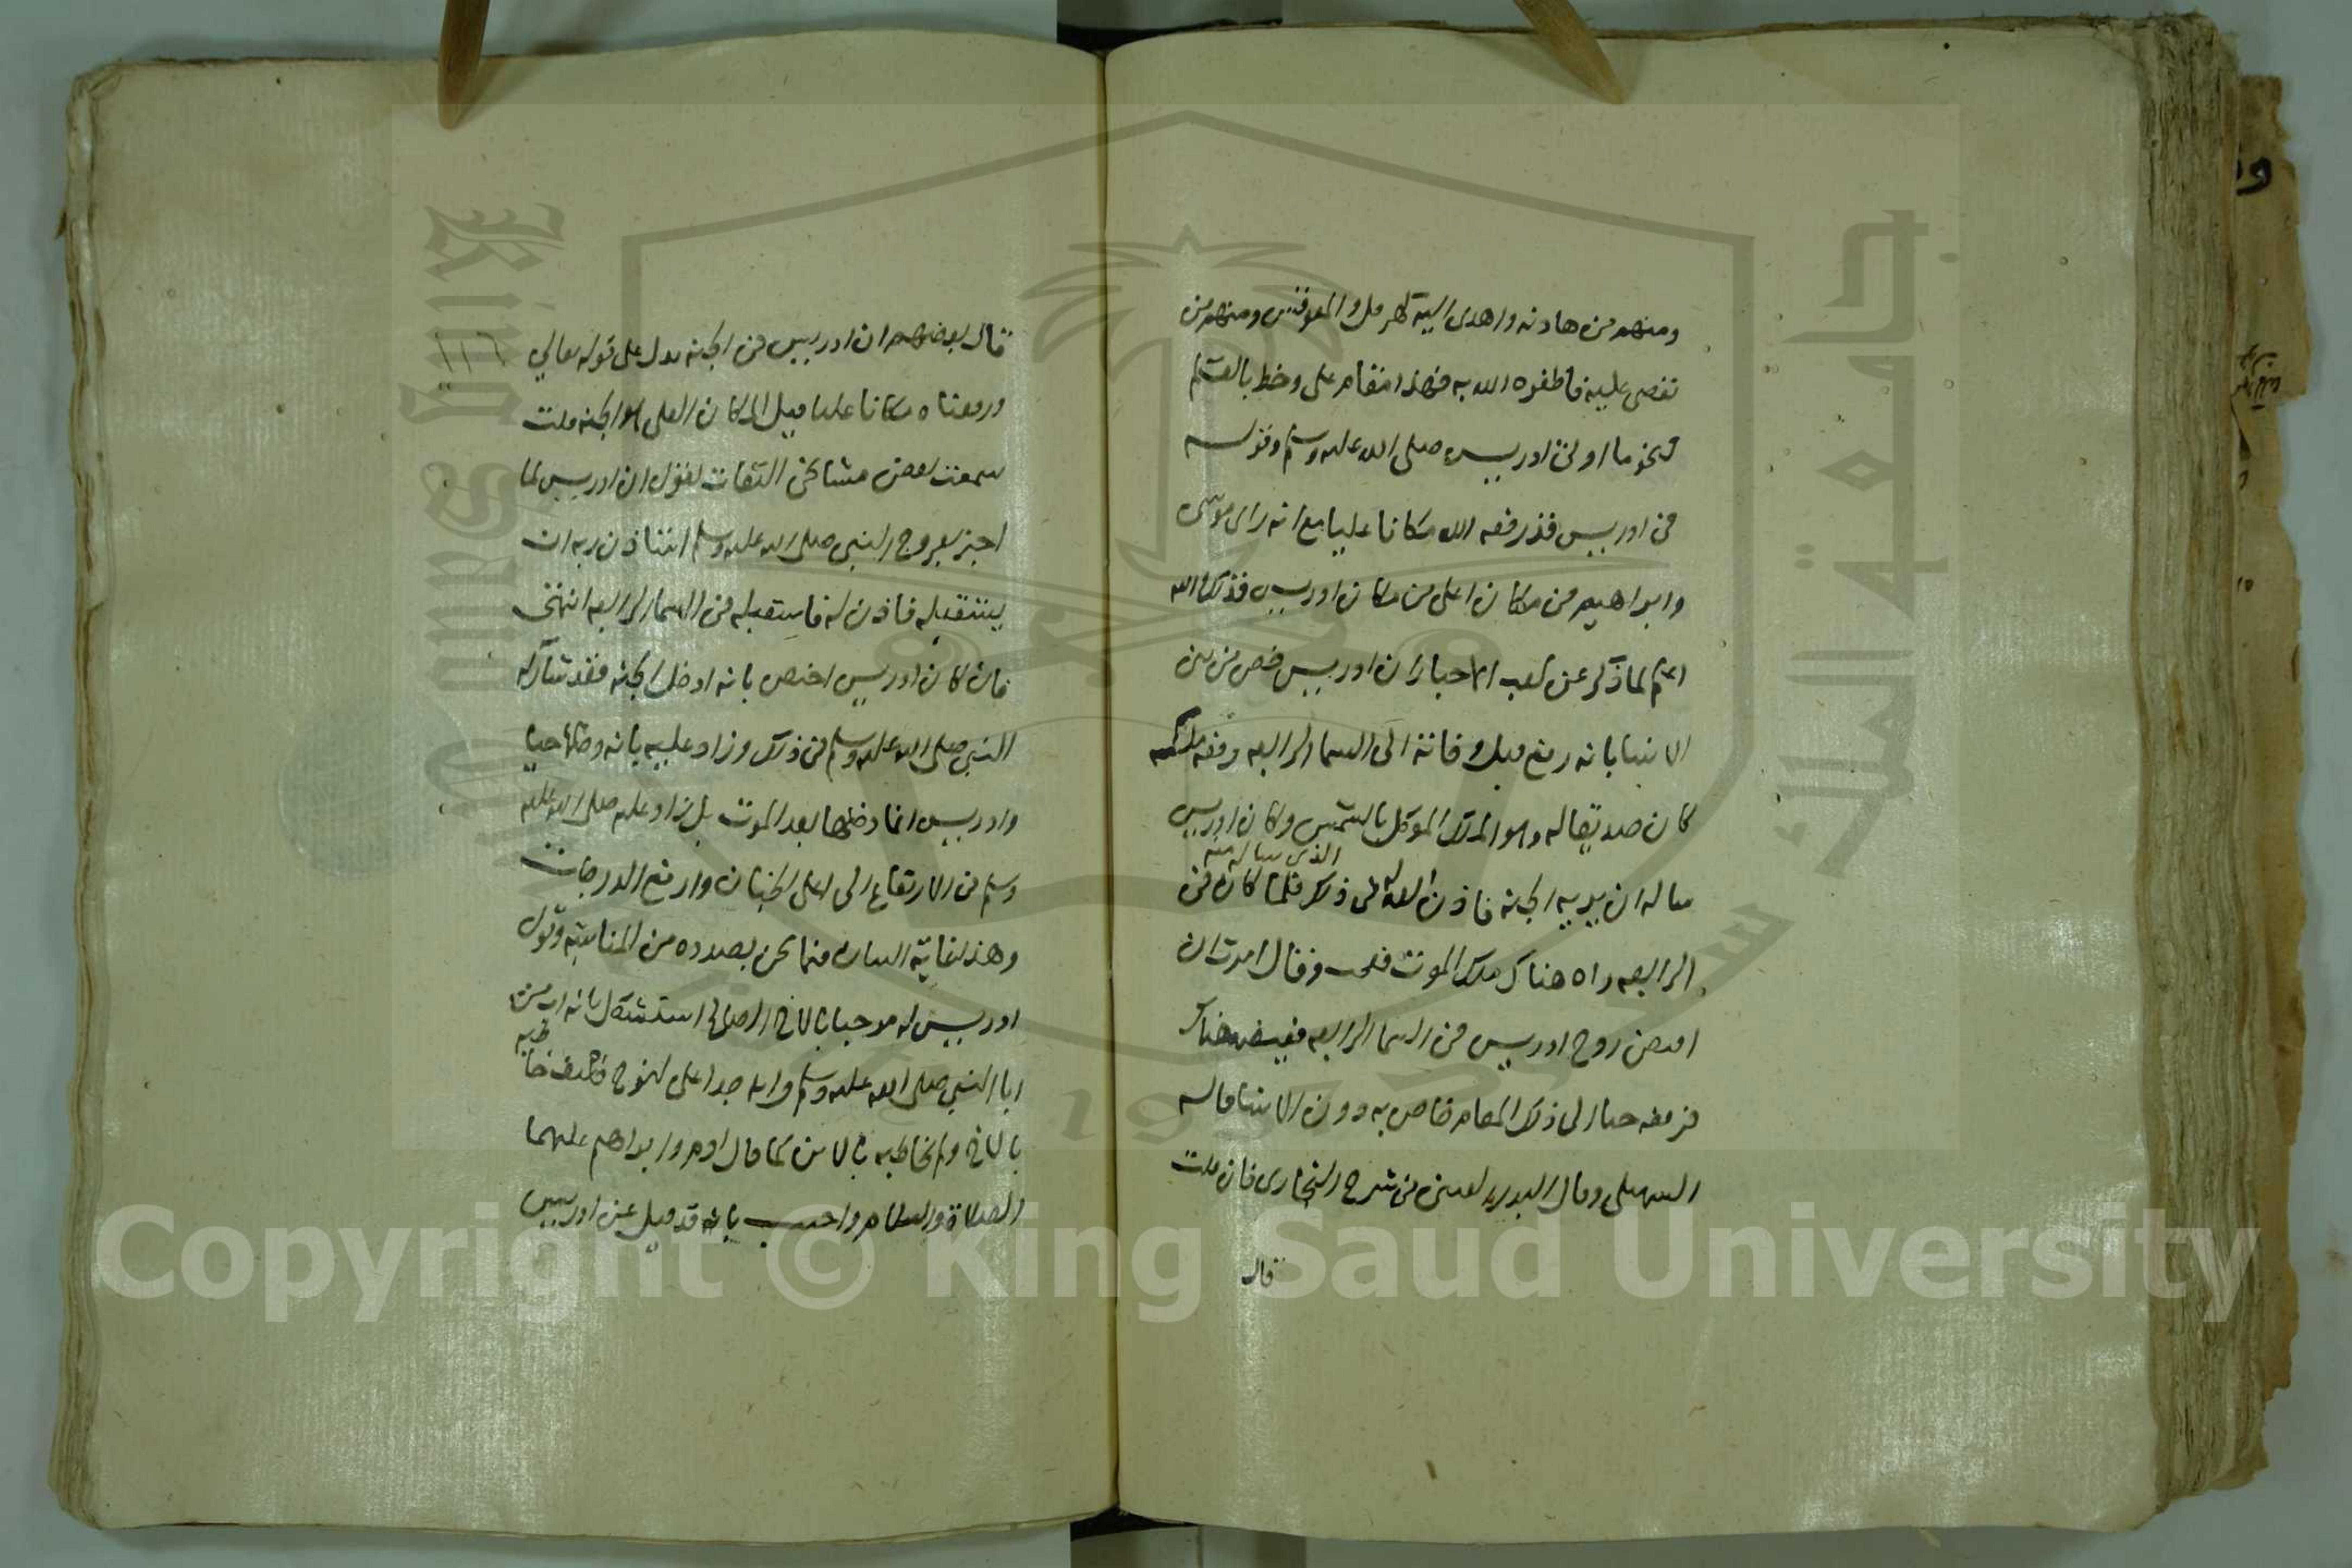 ومنهم من هادنه واهدى اليه كهرمل والمقوقس ومنهم من
تعصى عليه فاظفره الله به فهذا مقام على وخط بالقلم
نحو ما اوتى ادريس صلى الله عليه وسلم وقوله
فى ادريس قد رفعه الله مكانا عليا مع انه راى موسى
وابراهيم فى مكان اعلى من مكان ادريس فذلك والله
اعلم لما ذكر عن كعب الاحبار ان ادريس خص من بين
الانبيا بانه رفع قبل وفاته الى السما الرابعه رفعه ملك
كان صديقا له وهو الملك الموكل بالشمس وكان ادريس
ساله ان يريه الجنة فاذن الله له فى ذلك فلما كان فى
الذى ساله منه
الرابعه راه هناك ملك الموت فعجب وقال امرت ان
اقبض روح ادريس فى السما الرابعه فقبضه هناك
فرفعه حيا الى ذلك المقام خاص به دون الانبيا قاله
السهيلى وقال البدر العينى فى شرح البخارى فان قلت
قال
قال بعضهم ان ادريس فى الجنة يدل على قوله تعالى
١١٦
ورفعناه مكانا عليا قيل المكان العلى هو الجنة قلت
سمعت بعض مشايخى الثقات يقول ان ادريس لما
اخبر بعروج النبى صلى الله عليه وسلم استاذن ربه ان
يستقبله فاذن له فاستقبله فى السما الرابعه انتهى
فان كان ادريس اختص بانه ادخل الجنة فقد شاركه
النبى صلى الله عليه وسلم فى ذلك وزاد عليه بانه دخلها حيا
وادريس انما دخلها بعد الموت بل زاد عليه صلى الله عليه
وسلم فى الارتفاع الى اعلى الجنان وارفع الدرجات
وهذا غاية البيان فيما نحن بصدده من المناسبة وقول
ادريس له مرحبا بالاخ الصالح استشكل بانه اب من
ابا النبى صلى الله عليه وسلم وانه جد اعلى لنوح فكيف خا
طبه
بالاخ ولم يخاطبه بالابن كما قال ادم وابراهيم عليهما
الصلاة والسلام واجيب بانه قد قيل عن ادريس
جامعة الملك سعود
King Saud University
1957
Copyright © King Saud University